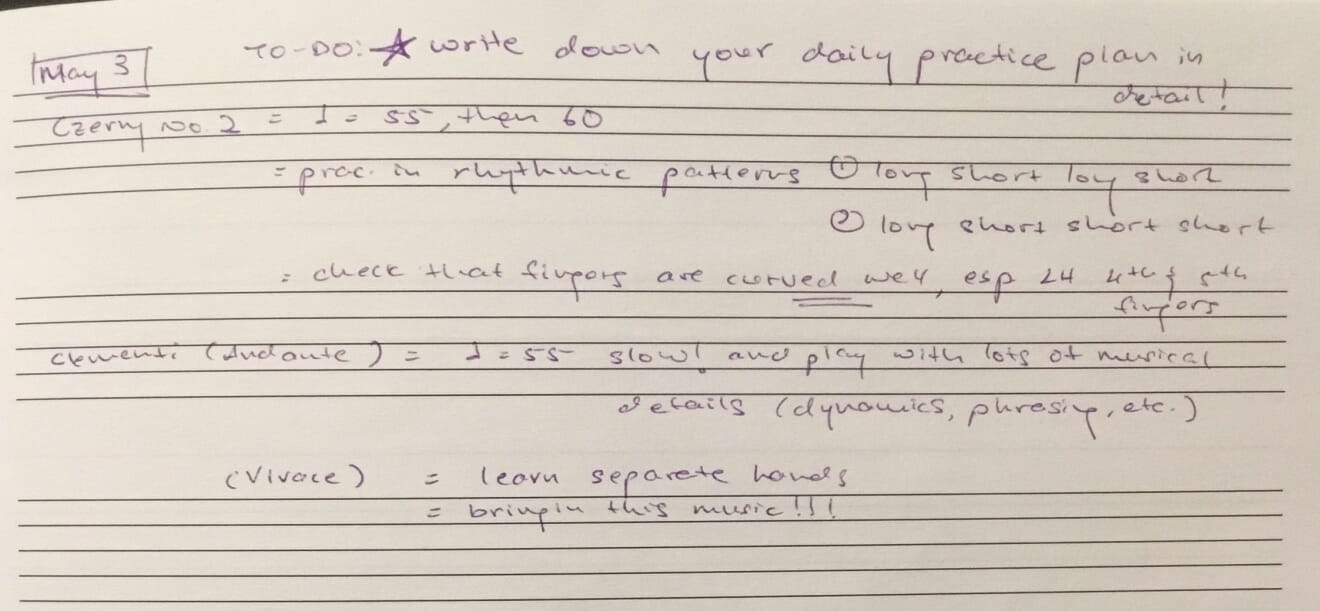 May 3 TO-DO: ☆ write down your daily practice plan in
detail!
Czerny No. 2 = ♩ = 55, then 60
= prac. in rhythmic patterns ① long short long short
② long short short short
= check that fingers are curved well, esp LH 4th & 5th
fingers
Clementi (Andante) = ♩ = 55 slow! and play with lots of musical
details (dynamics, phrasing, etc.)
(Vivace) = learn separate hands
= bring in this music!!!